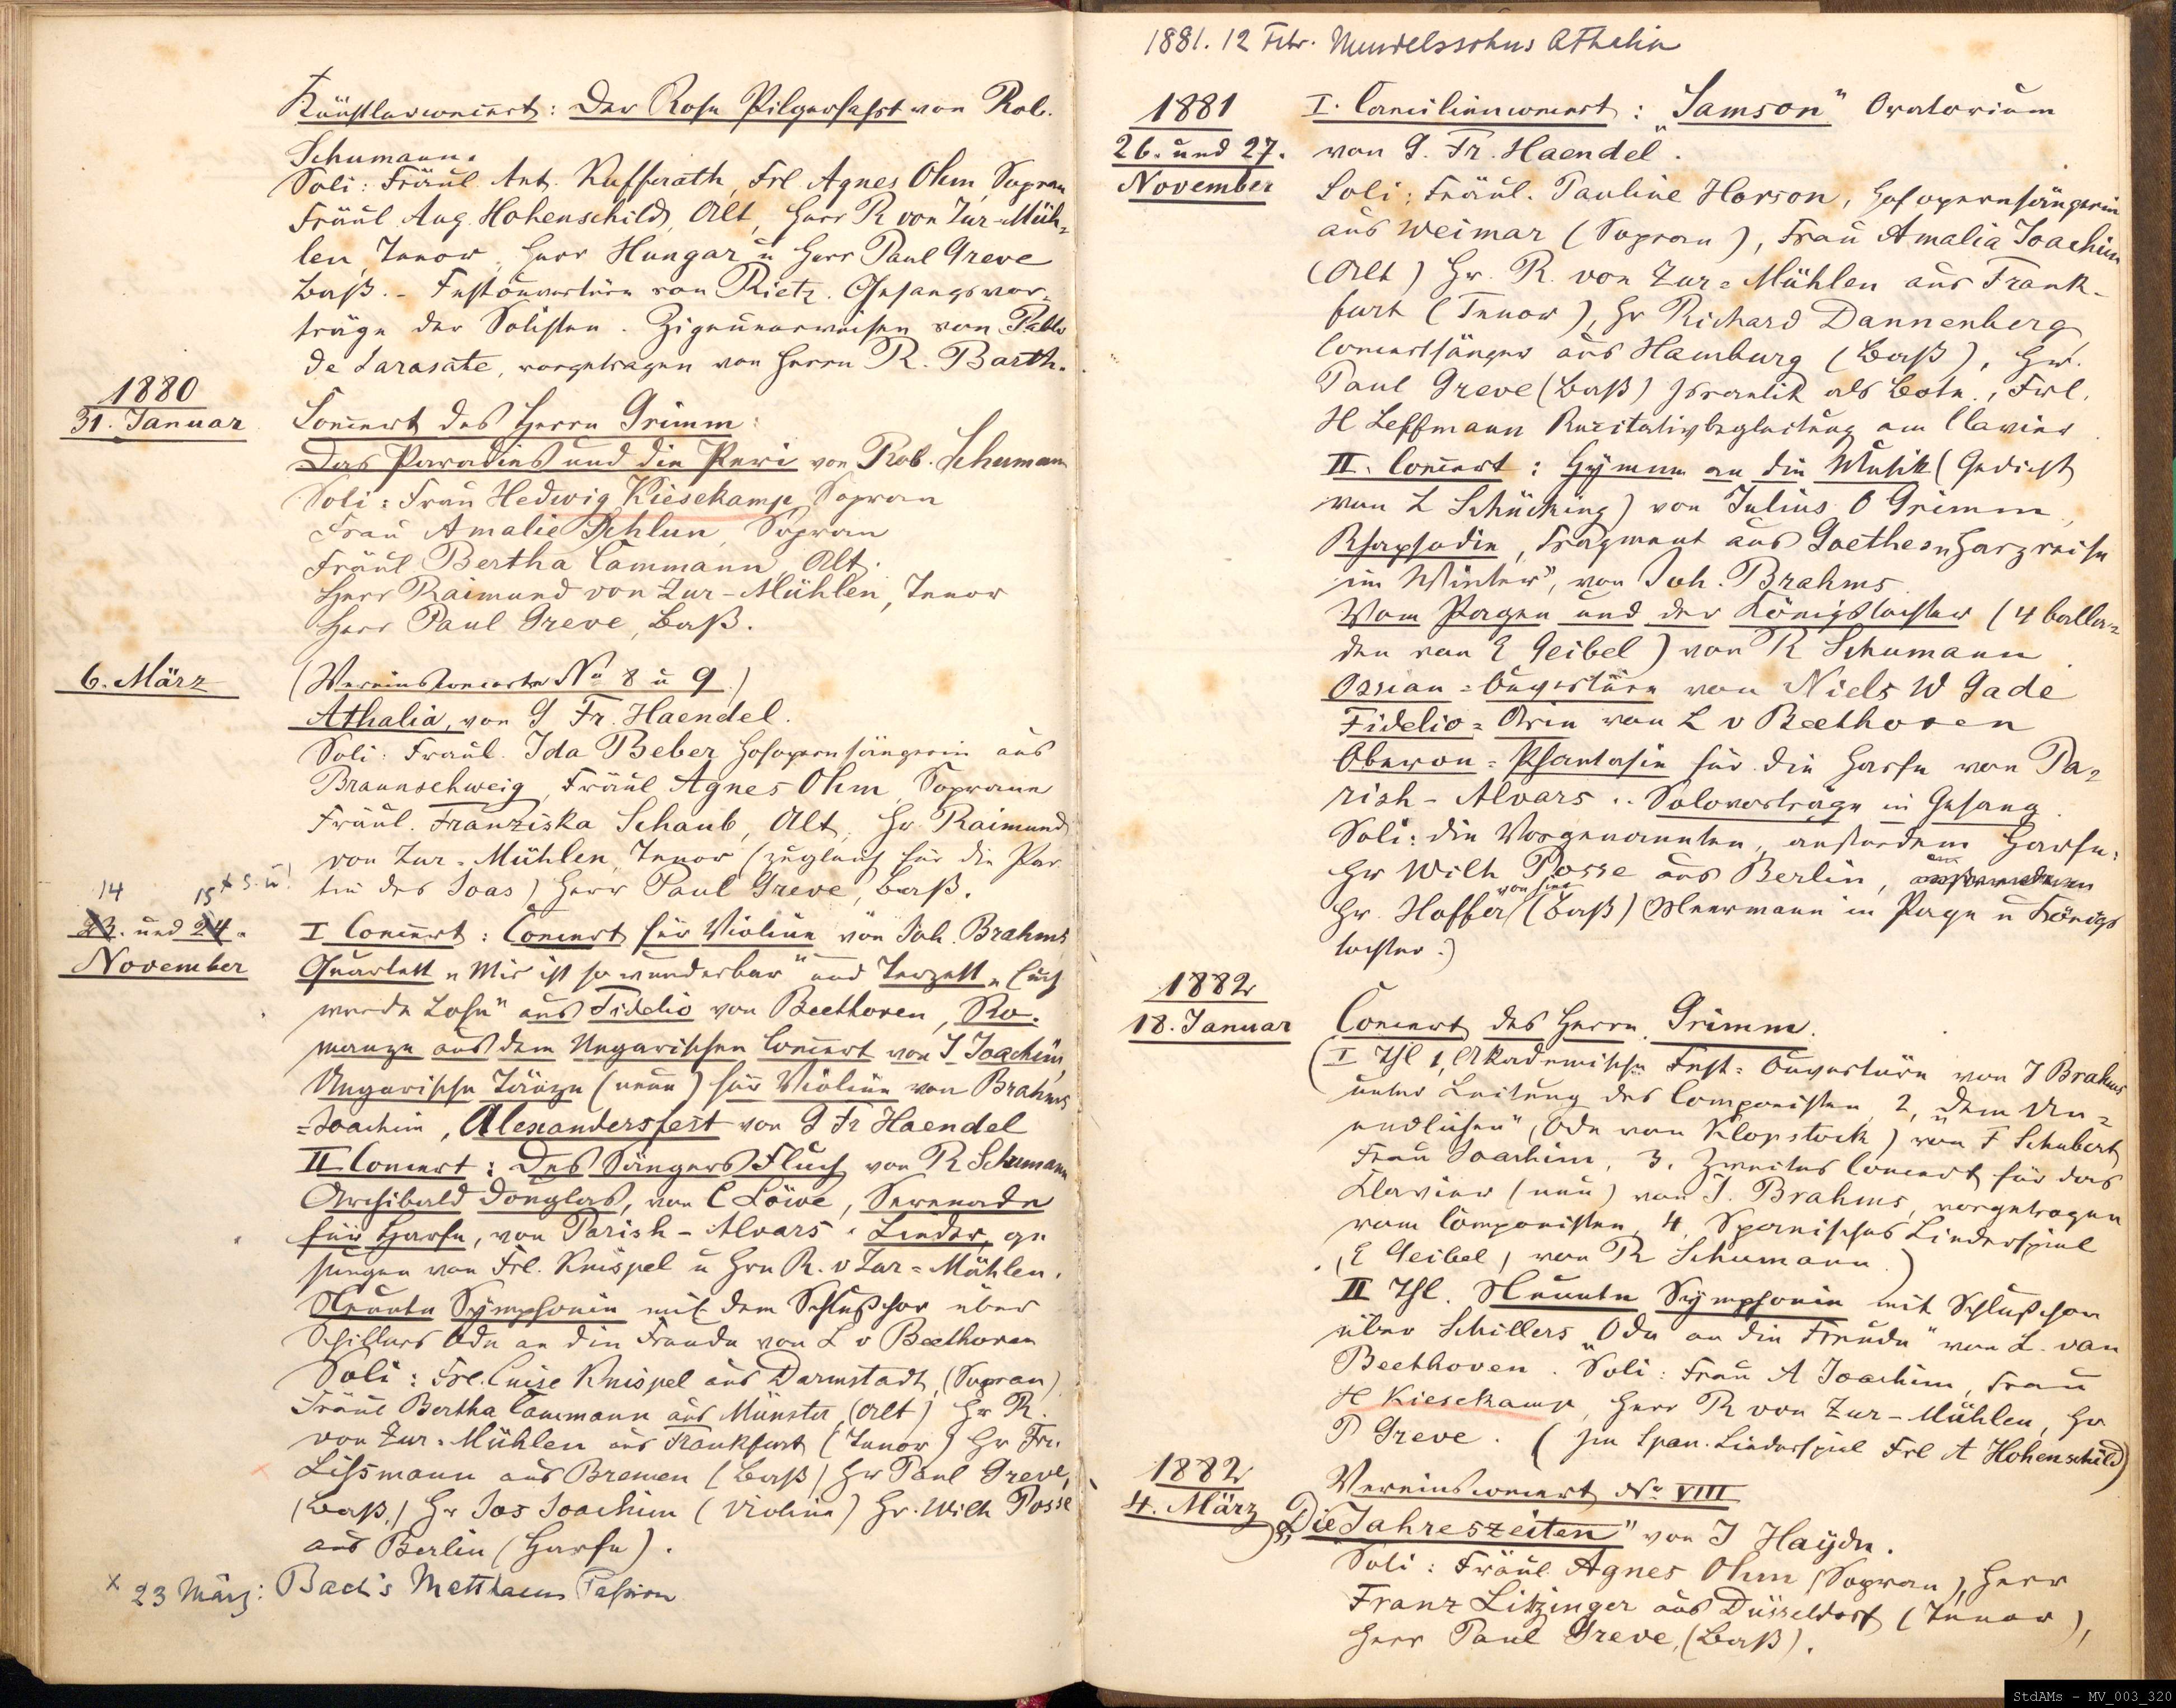 Künstlerconcert: Der Rose Pilgerfahrt von Rob.
Schumann.
Soli: Fräul. Ant. Kufferath, Frl. Agnes Ohm, Sopran
Fräul Aug. Hohenschild, Alt, Herr R von Zur-Müh-
len, Tenor, Herr Hungar u Herr Paul Greve
Baß. - Festouverture von Rietz. Gesangsvor-
träge der Solisten. Zigeunerweisen von Pablo
de Sarasate, vorgetragen von Herrn R. Barth.
1880
31. Januar
Concert des Herrn Grimm:
Das Paradies und die Peri von Rob. Schumann
Soli: Frau Hedwig Kiesekamp, Sopran
Frau Amalie Schlun, Sopran
Fräul Bertha Cammann, Alt.
Herr Raimund von Zur-Mühlen, Tenor
Herr Paul Greve, Baß.
6. März
(Vereinsconcerte No 8 u 9.)
Athalia, von G Fr. Haendel.
Soli: Fräul. Ida Beber Hofopernsängerin aus
Braunschweig, Fräul Agnes Ohm, Soprane
Fräul. Franziska Schaub, Alt, Hr Raimund
von Zur-Mühlen, Tenor (zugleich für die Par-
tie des Joas) Herr Paul Greve, Baß.
14 15 x s. u!
23. und 24.
November
I Concert: Concert für Violine von Joh. Brahms
Quartett „Mir ist so wunderbar" und Terzett „Euch
werde Lohn" aus Fidelio von Beethoven, Ro-
manze aus dem Ungarischen Concert von J Joachim,
Ungarische Tänze (neue) für Violine von Brahms
=Joachim, Alexandersfest von G Fr Haendel
II Concert: Des Sängers Fluch von R Schumann
Archibald Douglas, von C Löwe, Serenade
für Harfe, von Parish-Alvars. Lieder, ge
sungen von Frl. Knispel u Hrn R. v Zur-Mühlen.
Neunte Symphonie mit dem Schlußchor über
Schillers Ode an die Freude von L v Beethoven
Soli: Frl. Luise Knispel aus Darmstadt, (Sopran)
Fräul Bertha Cammann aus Münster, (Alt) Hr R.
von Zur-Mühlen aus Frankfurt (Tenor) Hr Frz.
Lißmann aus Bremen (Baß) Hr Paul Greve,
(Baß,) Hr Jos Joachim (Violine) Hr. Wilh Posse
aus Berlin (Harfe).
x 23 März: Bach's Matthaeus Passion
1881. 12 Febr. Mendelssohns Athalia
1881
26. und 27.
November
I. Caecilienconcert: „Samson" Oratorium
von G. Fr. Haendel.
Soli: Fräul. Pauline Horson, Hofopernsängerin
aus Weimar (Sopran), Frau Amalia Joachim
(Alt) Hr. R. von Zur-Mühlen aus Frank-
furt (Tenor), Hr Richard Dannenberg
Concertsänger aus Hamburg (Baß), Hr.
Paul Greve (Baß) Israelit als Bote, Frl.
H Leffmann Recitativbegleitung am Clavier
II. Concert: Hymne an die Musik (Gedicht
von L Schücking) von Julius O Grimm,
Rhapsodie, Fragment aus Goethes „Harzreise
im Winter", von Joh. Brahms
Vom Pagen und der Königstochter (4 Balla-
den von E Geibel) von R Schumann
Ossian-Ouverture von Niels W Gade
Fidelio-Arie von L v Beethoven
Oberon-Phantasie für die Harfe von Pa-
rish-Alvars. Solovorträge in Gesang
Soli: die Vorgenannten, außerdem Harfe:
Hr Wilh Posse aus Berlin,
Hr. Hoffer von hier (Baß) Meermann in Page u Königs
tochter.)
1882
18. Januar
Concert des Herrn Grimm.
(I Thl 1, Akademische Fest-Ouverture von J Brahms
unter Leitung des Componisten, 2, „Dem Un-
endlichen", (Ode von Klopstock) von F Schubert
Frau Joachim, 3, Zweites Concert für das
Klavier (neu) von J. Brahms, vorgetragen
vom Componisten, 4, Spanisches Liederspiel
(E Geibel) von R Schumann.)
II Thl. Neunte Symphonie mit Schlußchor
über Schillers „Ode an die Freude" von L. van
Beethoven. Soli: Frau A Joachim, Frau
H Kiesekamp, Herr R von Zur-Mühlen, Hr
P Greve. (Im Span. Liederspiel Frl A Hohenschild)
1882
4. März
Vereinsconcert No VIII
„Die Jahreszeiten" von J Haydn.
Soli: Fräul. Agnes Ohm (Sopran), Herr
Franz Litzinger aus Düsseldorf (Tenor),
Herr Paul Greve, (Baß).
StdAMs - MV_003_320